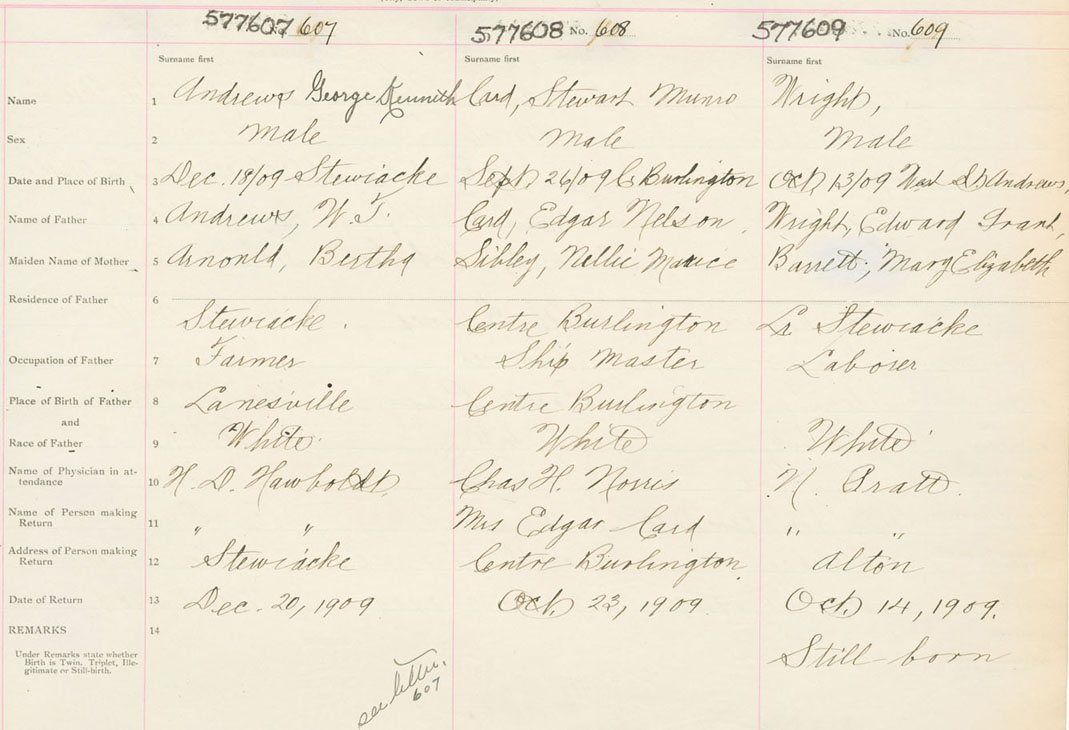 577607 607 577608 No. 608 577609 No. 609
Surname first Surname first Surname first
Name 1 Andrews George Kennith Card, Stewart Munro Wright,
Sex 2 Male Male Male
Date and Place of Birth 3 Dec. 18/09 Stewiacke Sept 26/09 C. Burlington Oct 13/09 West St Andrews,
Name of Father 4 Andrews, W. T. Card, Edgar Nelson Wright, Edward Grant,
Maiden Name of Mother 5 Arnonld, Bertha Sibley, Nellie Maurice Barrett, Mary Elizabeth
Residence of Father 6
Stewiacke. Centre Burlington Lr Stewiacke
Occupation of Father 7 Farmer Ship Master Laborer
Place of Birth of Father 8 Lanesville Centre Burlington
and
Race of Father 9 White White White
Name of Physician in at-
tendance 10 H. D. Hawboldt Chas H. Norris N. Pratt.
Name of Person making
Return 11 " " Mrs Edgar Card " "
Address of Person making
Return 12 Stewiacke Centre Burlington Alton
Date of Return 13 Dec. 20, 1909 Oct. 23, 1909 Oct. 14, 1909.
REMARKS 14
Under Remarks state whether
Birth is Twin, Triplet, Ille-
gitimate or Still-birth.
Still-born
see letter.
607